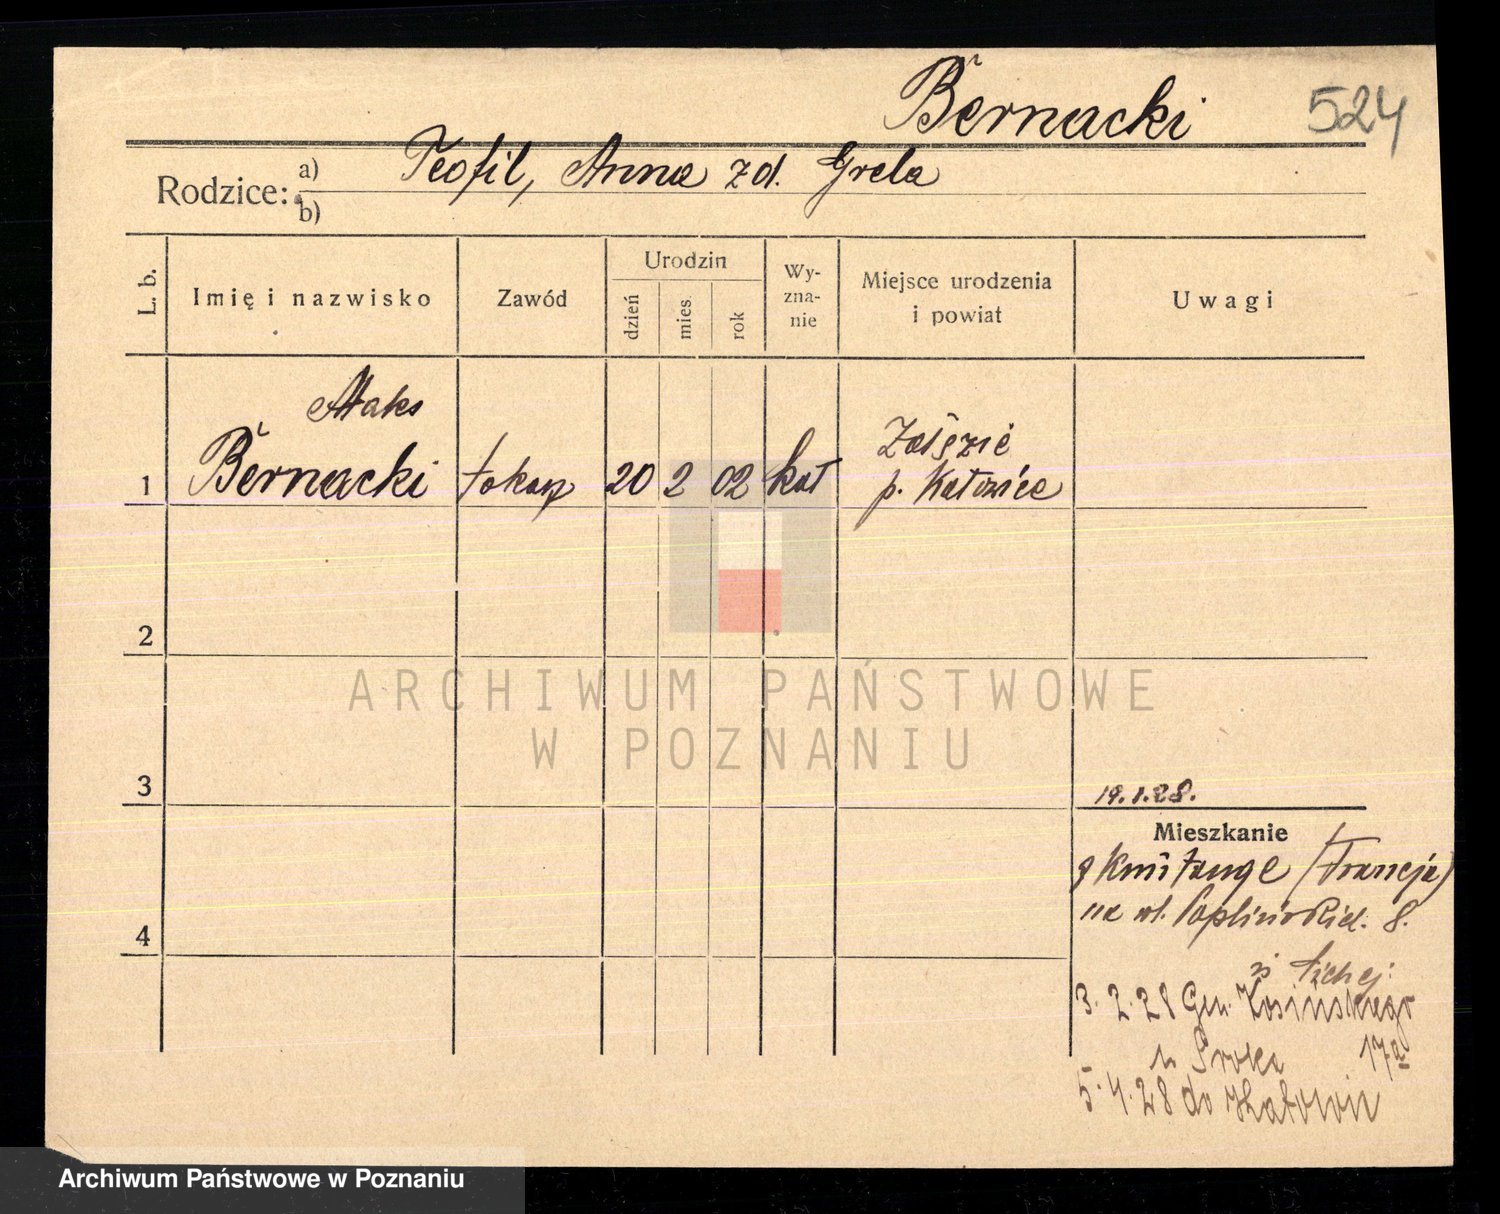 Bernacki 524
Rodzice: a) Teofil, Anna zd. Grela
b)
L. b. Imię i nazwisko Zawód Urodzin dzień mies. rok Wy-zna-nie Miejsce urodzenia i powiat Uwagi
Maks
1 Bernacki tokarz 20 2 02 kat
p. Katowice
2
ARCHIWUM PAŃSTWOWE
W POZNANIU
3
19.1.28.
Mieszkanie
(Francja)
na ul. 8.
4
3.2.28 Gen. Kosińskiego
17a
5.4.28 do Katowic
Archiwum Państwowe w Poznaniu